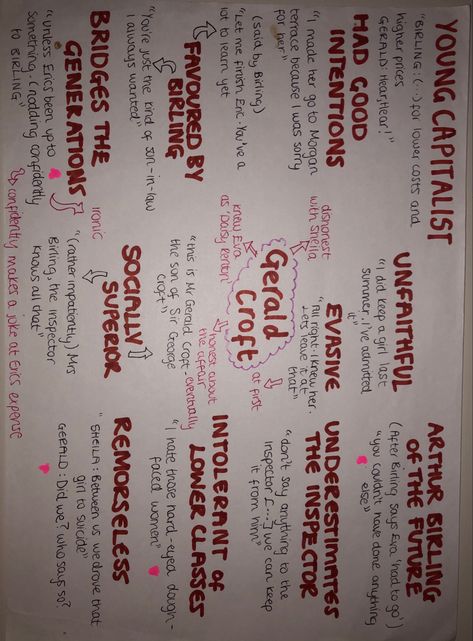 YOUNG CAPITALIST
"BIRLING: (...) for lower costs and
higher prices
GERALD: Hear, hear!"
HAD GOOD
INTENTIONS
"I made her go to Morgan
terrace because I was sorry
for her"
(said by Birling)
"Let me finish Eric. You've a
lot to learn yet
FAVOURED BY
BIRLING
"You're just the kind of son-in-law
I always wanted"
BRIDGES THE
GENERATIONS
"Unless Eric's been up to
something. (nodding confidently
to BIRLING"
ironic
confidently makes a joke at Eric's expense
UNFAITHFUL
"I did keep a girl last
summer. I've admitted
it"
dishonest
with Sheila
EVASIVE
"All right. I knew her.
Let's leave it at
that"
at first
knew Eva
as 'Daisy Renton'
Gerald
Croft
honest about
the affair
eventually
"this is Mr Gerald Croft -
the son of Sir George
Croft"
SOCIALLY
SUPERIOR
"(rather impatiently) Mrs
Birling, the inspector
knows all that"
ARTHUR BIRLING
OF THE FUTURE
(After Birling says Eva 'had to go')
"you couldn't have done anything
else"
UNDERESTIMATES
THE INSPECTOR
"don't say anything to the
inspector [...] we can keep
it from him"
INTOLERANT OF
LOWER CLASSES
"I hate those hard-eyed dough-
faced women"
REMORSELESS
"SHEILA: Between us we drove that
girl to suicide"
GERALD: Did we? Who says so?